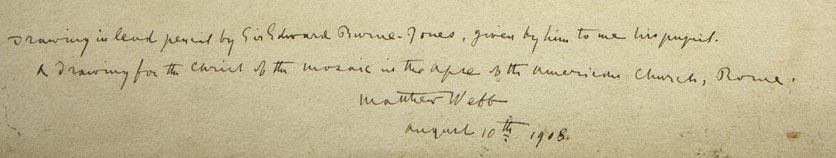 Drawing in lead pencil by Sir Edward Burne-Jones, given by him to me his pupil.
A drawing for the Christ of the mosaic in the apse of the American Church, Rome.
Matthew Webb
August 10th 1908.